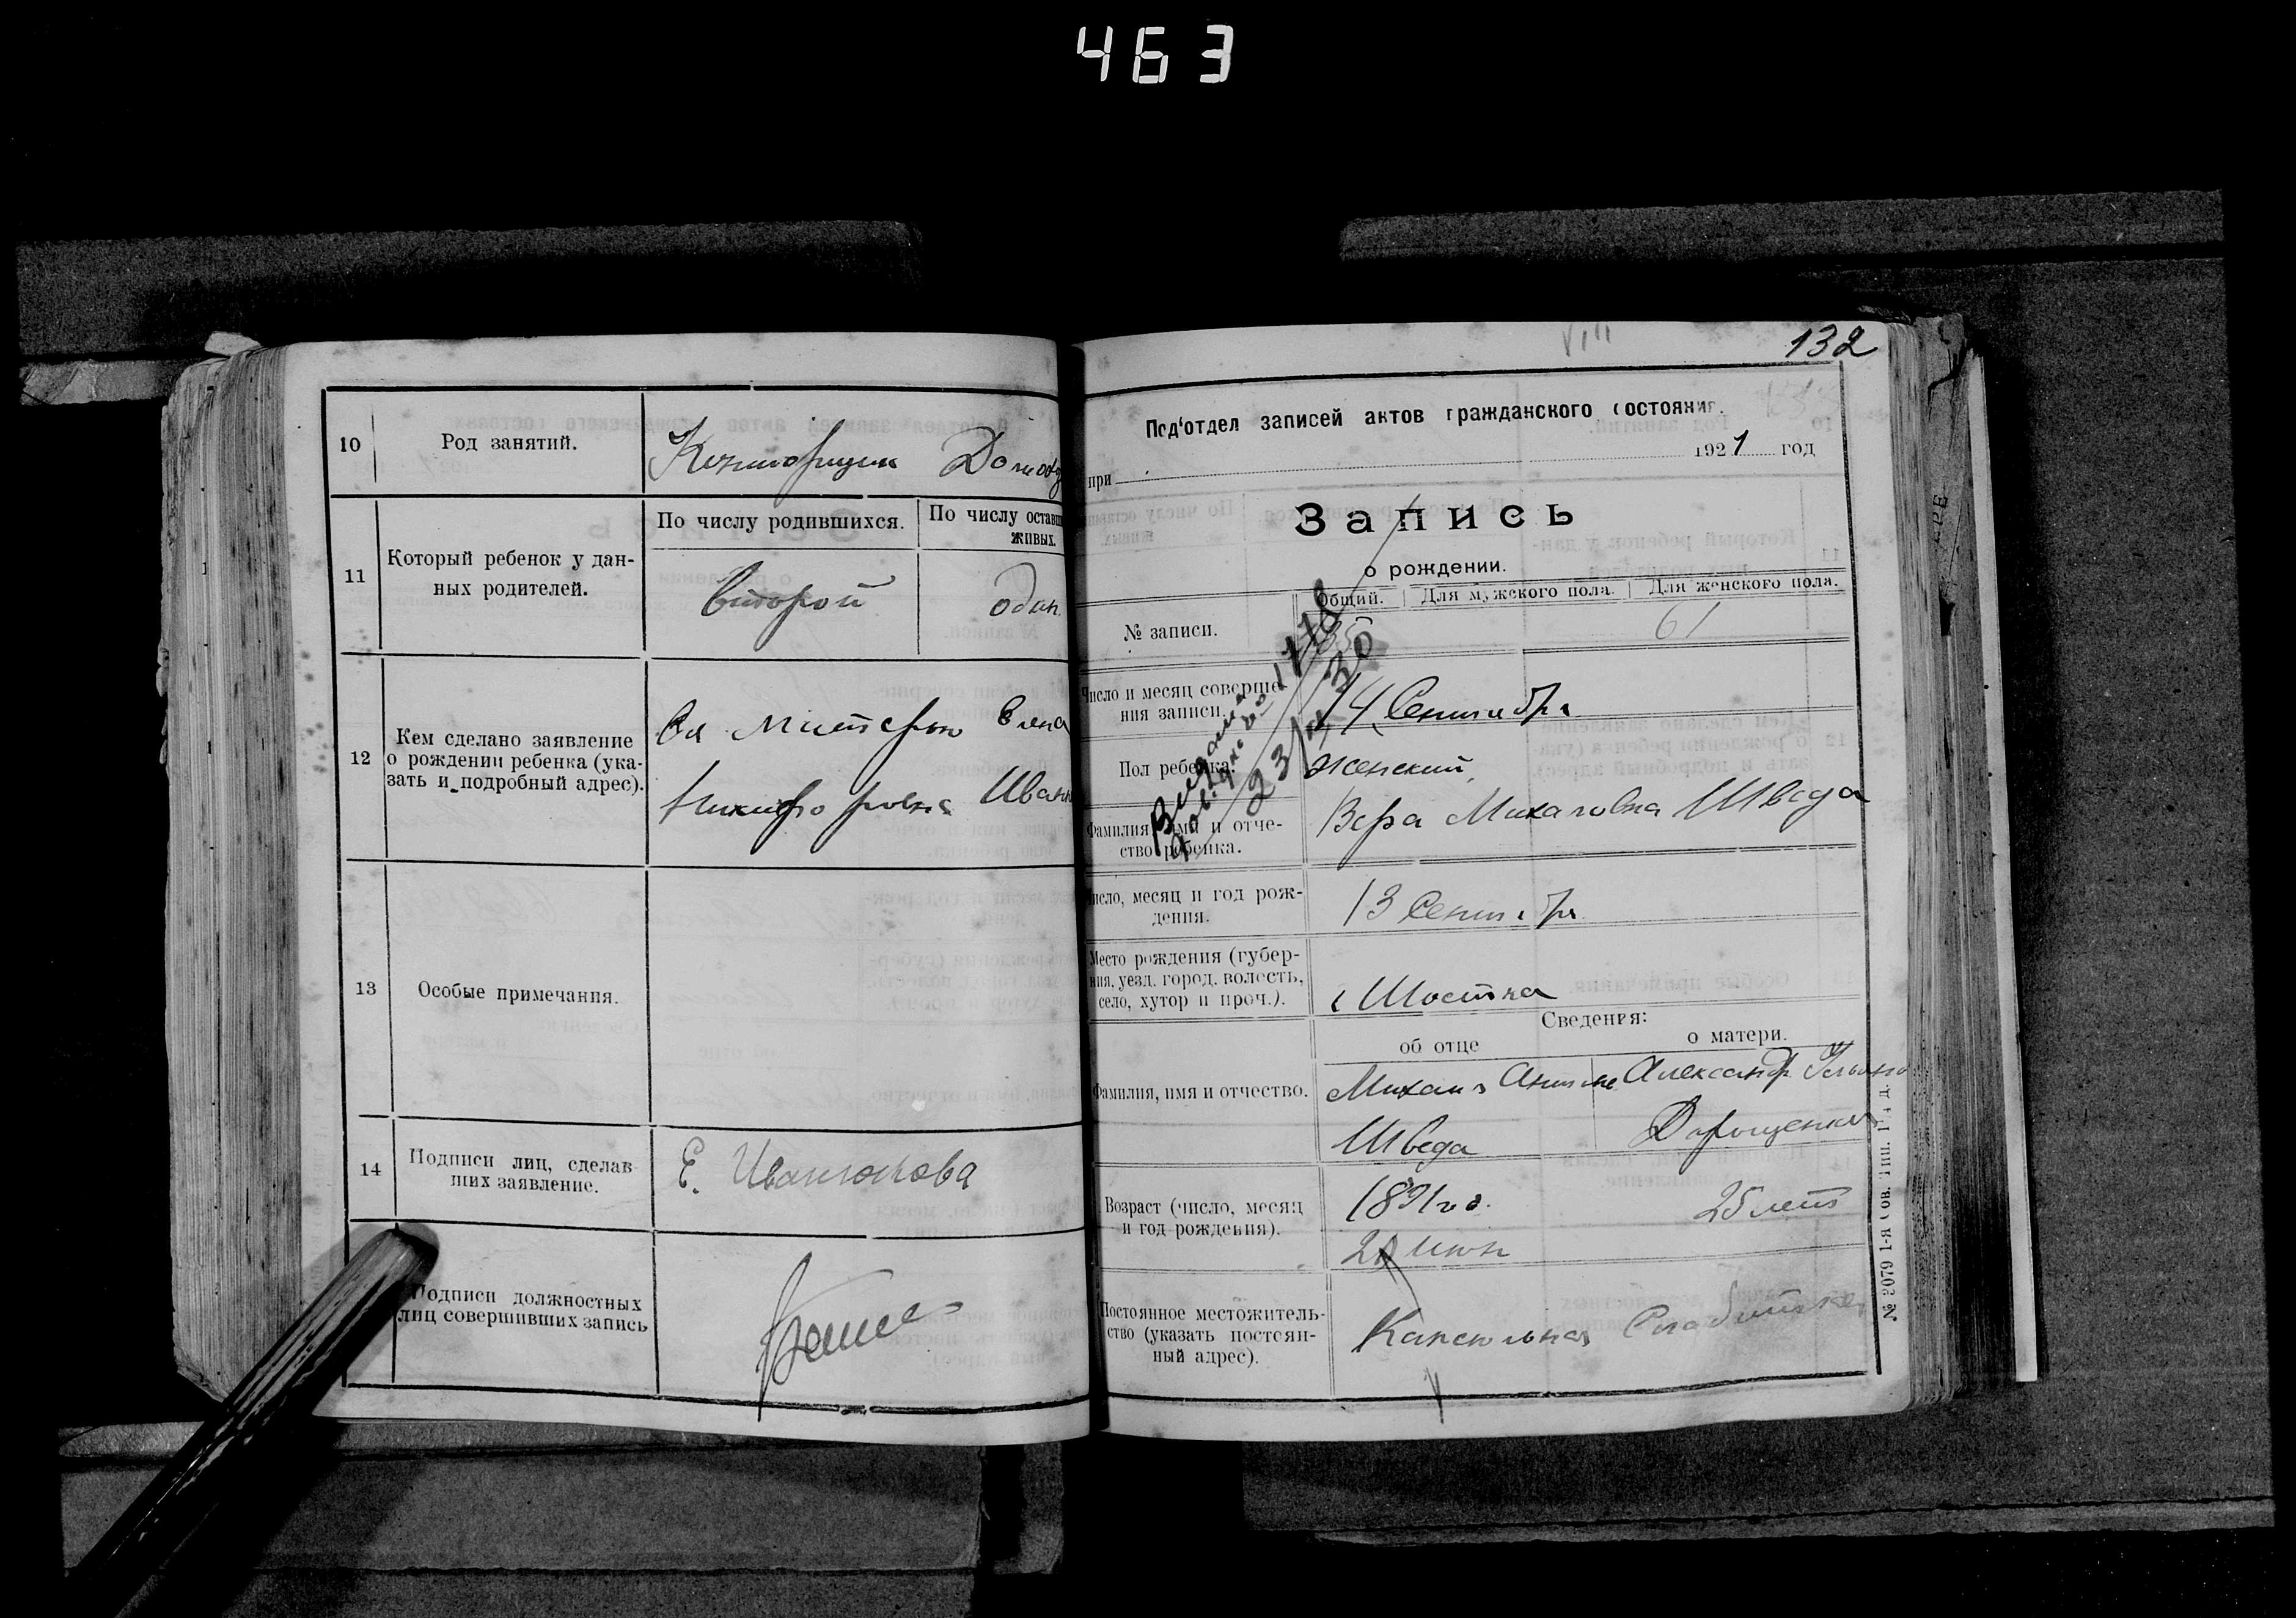 463
10
Род занятий.
11
Который ребенок у дан-
ных родителей.
По числу родившихся.
По числу оставш
живых.
второй
один.
12
Кем сделано заявление
о рождении ребенка (ука-
зать и подробный адрес).
Елена
Никифоровна Иван
13
Особые примечания.
14
Подписи лиц, сделав-
ших заявление.
Е. Иванюкова
Подписи должностных
лиц совершивших запись
VIII
132
Под'отдел записей актов гражданского состояния.
при
1921 год
Запись
о рождении.
Общий.
Для мужского пола.
Для женского пола.
№ записи.
61
Число и месяц соверше-
ния записи.
14 Сентября
Пол ребенка.
Женский
Фамилия, имя и отче-
ство ребенка.
Вера Михаловна Шведа
Число, месяц и год рож-
дения.
13 Сентября
Место рождения (губер-
ния, уезд, город, волость,
село, хутор и проч.).
Шостка
Сведения:
об отце
о матери.
Фамилия, имя и отчество.
Михаил
Александр
Шведа
Дорощенко
Возраст (число, месяц
и год рождения).
1891 го.
25 лет
Постоянное местожитель-
ство (указать постоян-
ный адрес).
Капсюльная Слободка
№ 2079 1-я Сов. Тип.